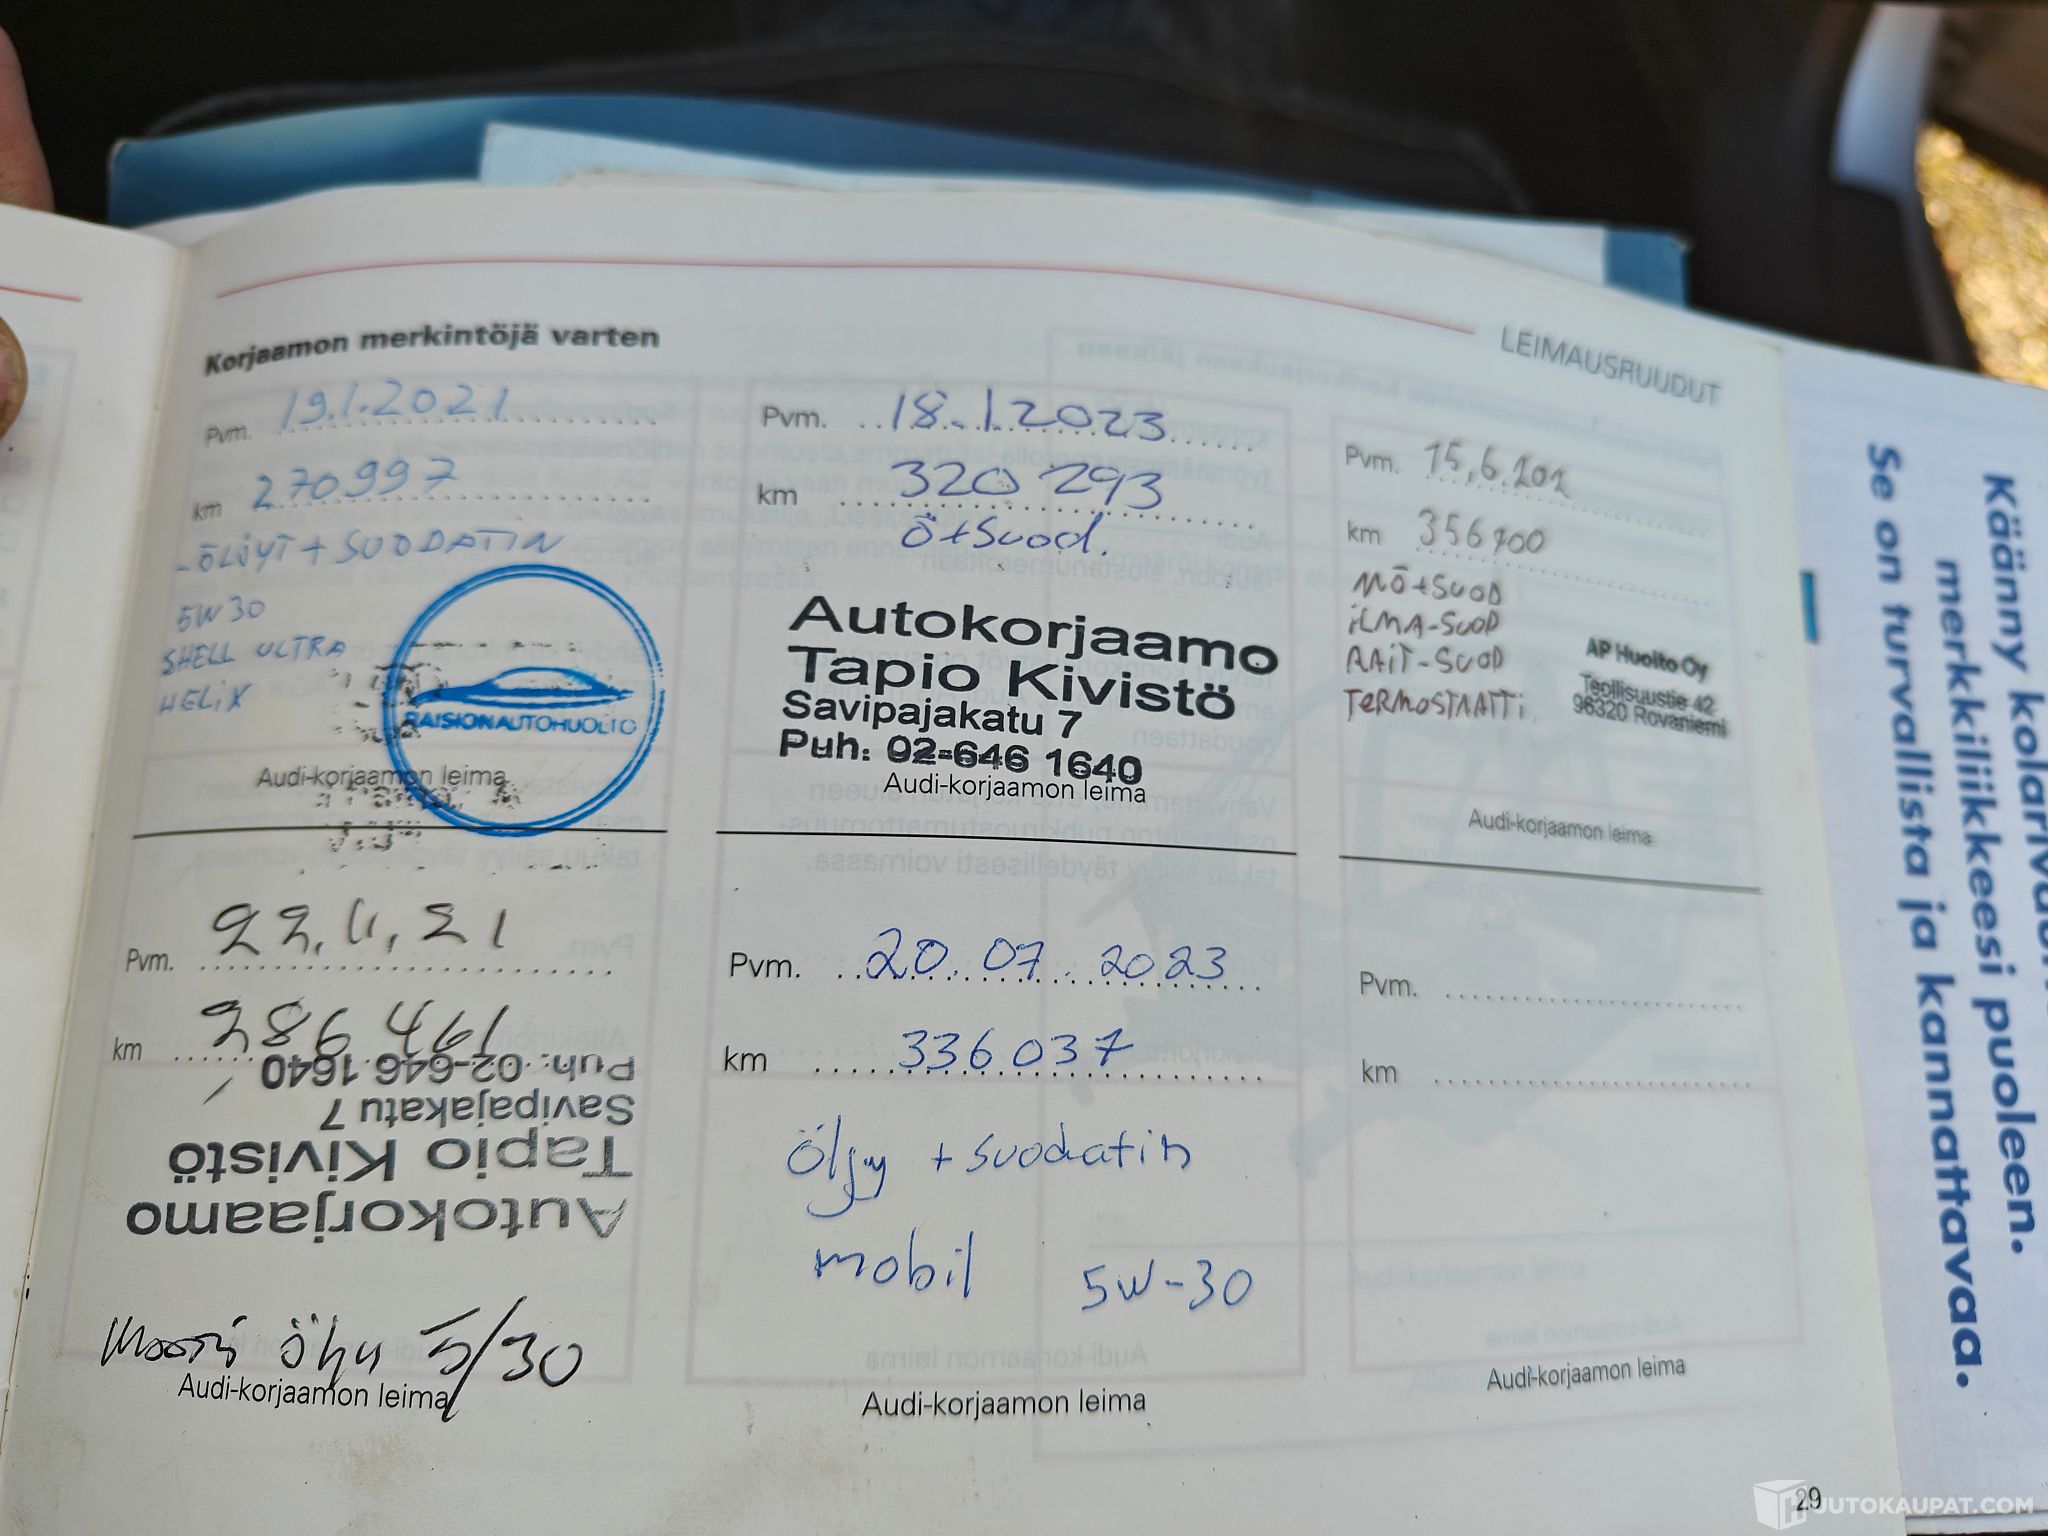 LEIMAUSRUUDUT
Korjaamon merkintöjä varten
Pvm. 19.1.2021
km 270997
-ÖLJYT + SUODATIN
5W30
SHELL ULTRA
HELIX
RAISIONAUTOHUOLTO
Audi-korjaamon leima
Pvm. 22.11.21
km 286 461
Autokorjaamo
Tapio Kivistö
Savipajakatu 7
Puh: 02-646 1640
öljy 5/30
Audi-korjaamon leima
Pvm. 18.1.2023
km 320 293
Ö+Suod.
Autokorjaamo
Tapio Kivistö
Savipajakatu 7
Puh: 02-646 1640
Audi-korjaamon leima
Pvm. 20.07.2023
km 336037
Öljy + suodatin
mobil 5W-30
Audi-korjaamon leima
Pvm. 15.6.202
km
MÖ+SUOD
iLMA-SUOD
RAIT-SUOD
TERMOSTAATTI
AP Huolto Oy
Teollisuustie 42
96320 Rovaniemi
Audi-korjaamon leima
Pvm.
km
Audi-korjaamon leima
29
Käänny
merkkiliikkeesi puoleen.
Se on turvallista ja kannattavaa.
AUTOKAUPAT.COM